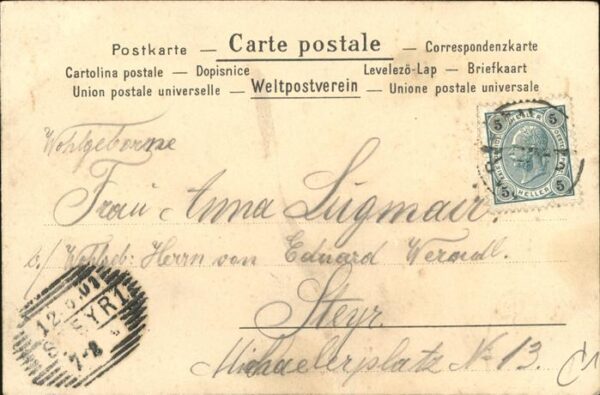 Postkarte — Carte postale — Correspondenzkarte
Cartolina postale — Dopisnice Levelezö-Lap — Briefkaart
Union postale universelle — Weltpostverein — Unione postale universale
5 HELLER 5
5 HELLER 5
Wohlgeborne
Frau Anna Lugmair.
b./ Wohlgeb: Herrn von Eduard Werndl.
Steyr.
Michaelerplatz No 13.
STEYR 1
7-8